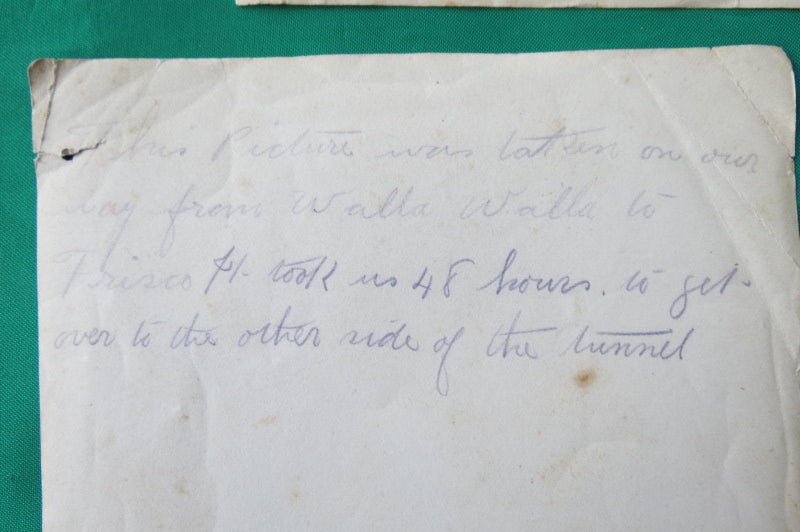 This Picture was taken on our
way from Walla Walla to
Frisco It took us 48 hours. to get
over to the other side of the tunnel